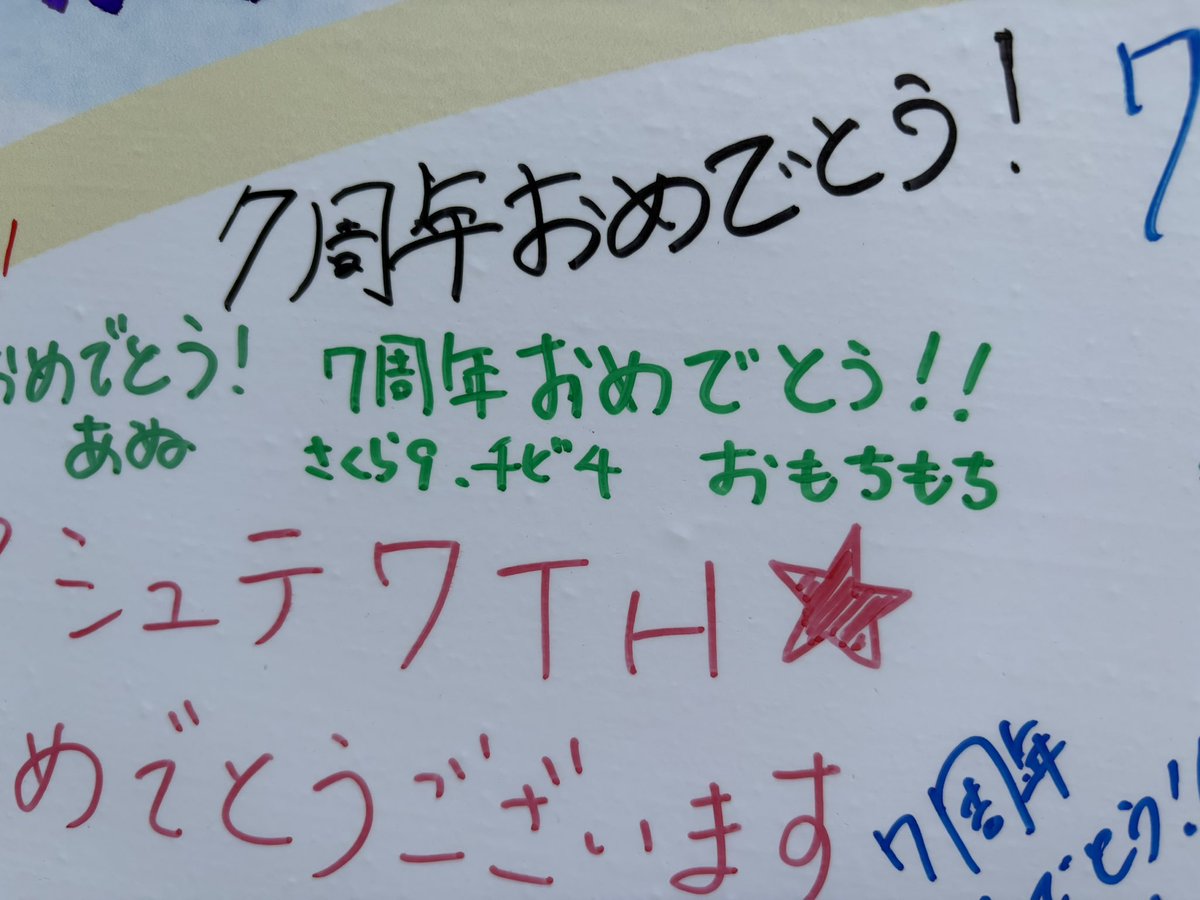 7周年おめでとう!
7
おめでとう!
あぬ
7周年おめでとう!!
さくら9、チビ4 おもちもち
シュテ7TH★
めでとうございます
7周年
でとう!!